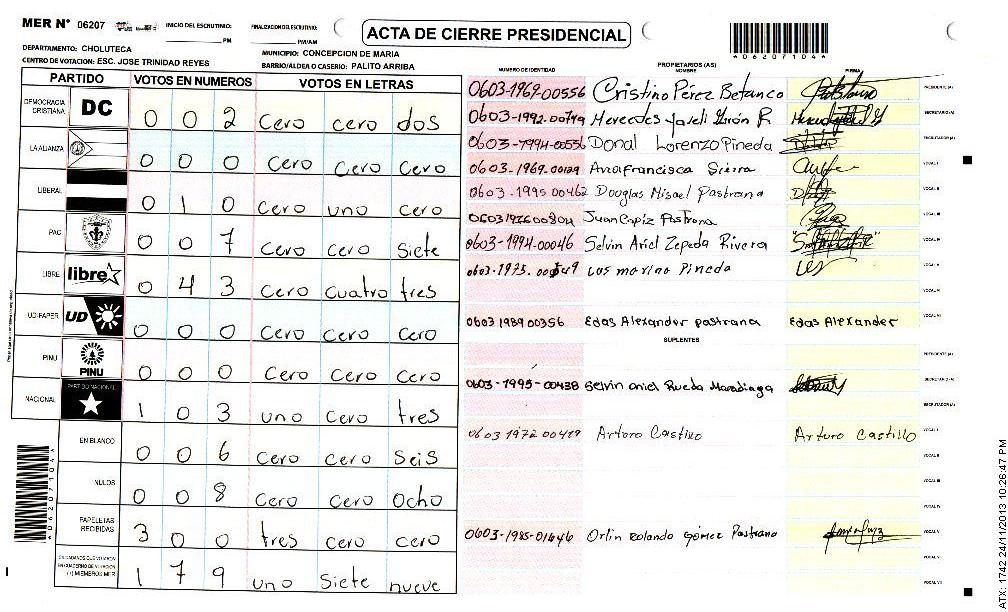 MER N° 06207 INICIO DEL ESCRUTINIO: PM FINALIZACION DEL ESCRUTINIO: PM/AM
ACTA DE CIERRE PRESIDENCIAL
*06207104*
DEPARTAMENTO: CHOLUTECA MUNICIPIO: CONCEPCION DE MARIA
CENTRO DE VOTACION: ESC. JOSE TRINIDAD REYES BARRIO/ALDEA O CASERIO: PALITO ARRIBA
PARTIDO VOTOS EN NUMEROS VOTOS EN LETRAS
DEMOCRACIA CRISTIANA DC 0 0 2 cero cero dos
LA ALIANZA 0 0 0 cero cero cero
LIBERAL 0 1 0 cero uno cero
PAC 0 0 7 cero cero siete
LIBRE libre 0 4 3 cero cuatro tres
UD-FAPER UD 0 0 0 cero cero cero
PINU PINU 0 0 0 cero cero cero
NACIONAL PARTIDO NACIONAL 1 0 3 uno cero tres
EN BLANCO 0 0 6 cero cero seis
NULOS 0 0 8 cero cero ocho
PAPELETAS RECIBIDAS 3 0 0 tres cero cero
CIUDADANOS QUE VOTARON EN CUADERNO DE VOTACION (+) MIEMBROS MER 1 7 9 uno siete nueve
*06207104*
NUMERO DE IDENTIDAD PROPIETARIOS (AS) NOMBRE FIRMA
0603-1969-00556 Cristino Pérez Betanco PRESIDENTE (A)
0603-1992-00749 Mercedes Yareli Girón R SECRETARIO (A)
0603-1994-00556 Donal Lorenzo Pineda ESCRUTADOR (A)
0603-1969-00129 Ana francisca Sierra VOCAL I
0603-1995-00462 Douglas Misael Pastrana VOCAL II
0603197600804 Juan Pastrana VOCAL III
0603-1994-00046 Selvin Ariel Zepeda Rivera VOCAL IV
0603-1975- Los marino Pineda VOCAL V
0603198900356 Edas Alexander pastrana Edas Alexander VOCAL VI
SUPLENTES
PRESIDENTE (A)
0603-1995-00438 Selvin ariel Rueda Maradiaga SECRETARIO (A)
ESCRUTADOR (A)
0603 1972 00419 Arturo Castillo Arturo Castillo VOCAL I
VOCAL II
VOCAL III
VOCAL IV
0603-1985-01646 Orlin Rolando Gómez Pastrana VOCAL V
VOCAL VI
VOCAL VII
ATX: 1742 24/11/2013 10:26:47 PM